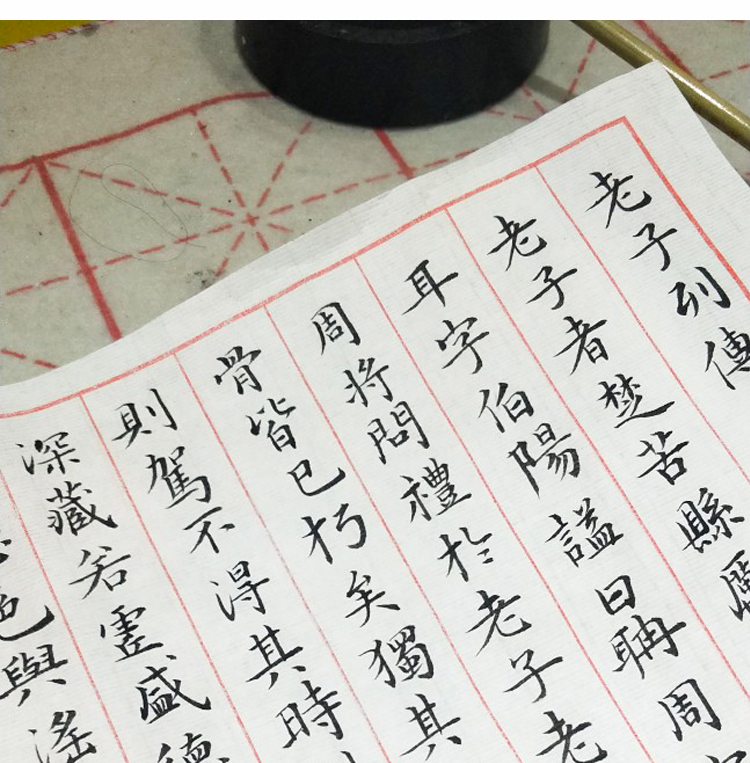 老子列傳
老子者楚苦縣厲
耳字伯陽謚曰聃周
周將問禮於老子老
骨皆已朽矣獨其
則駕不得其時
深藏若虛盛德
色與淫